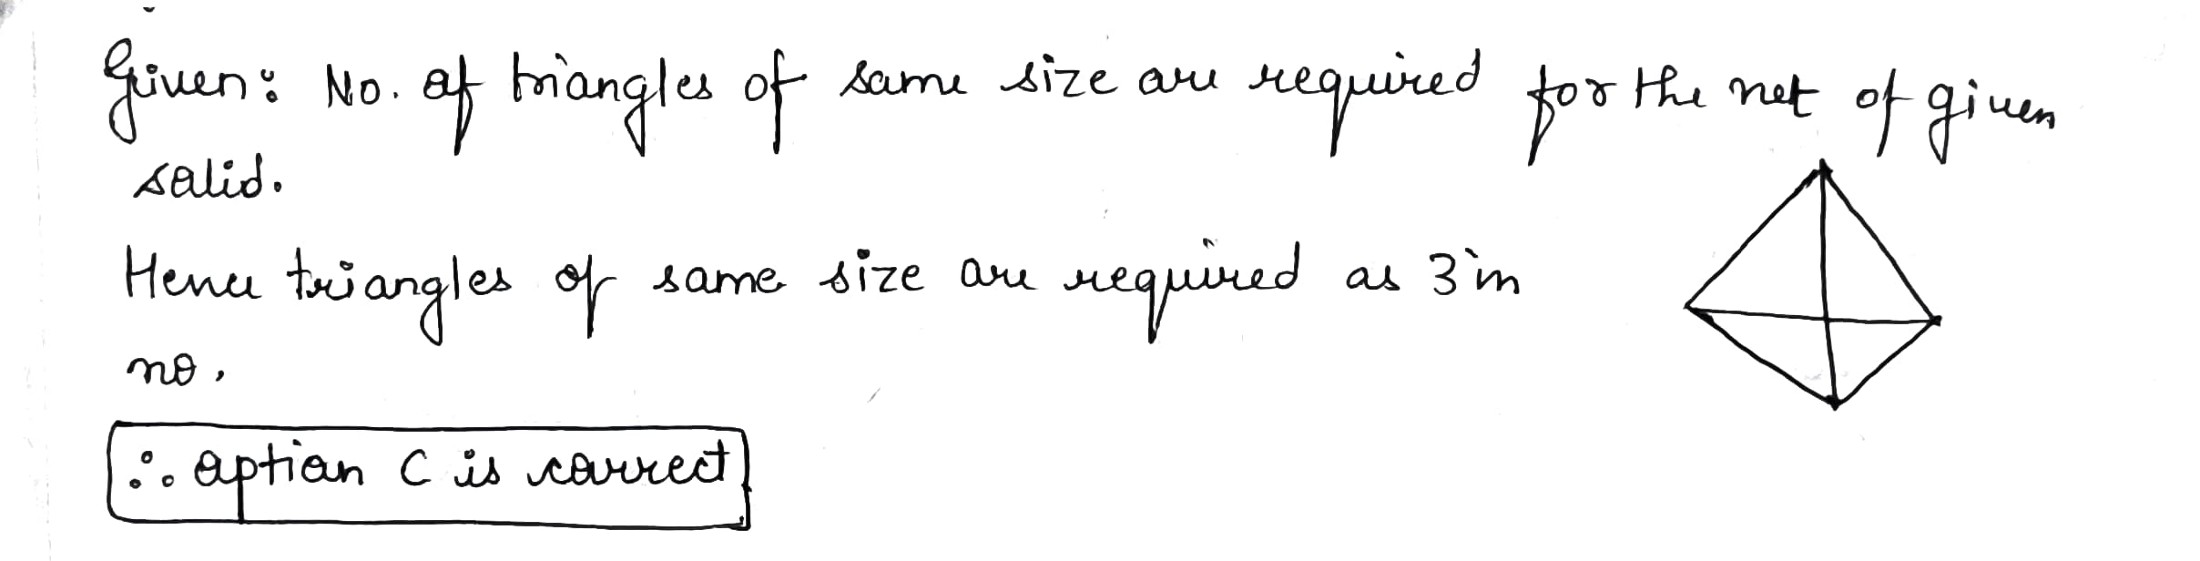 Given: No. of triangles of same size are required for the net of given
solid.
Hence triangles of same size are required as 3 in
no.
∴ option C is correct